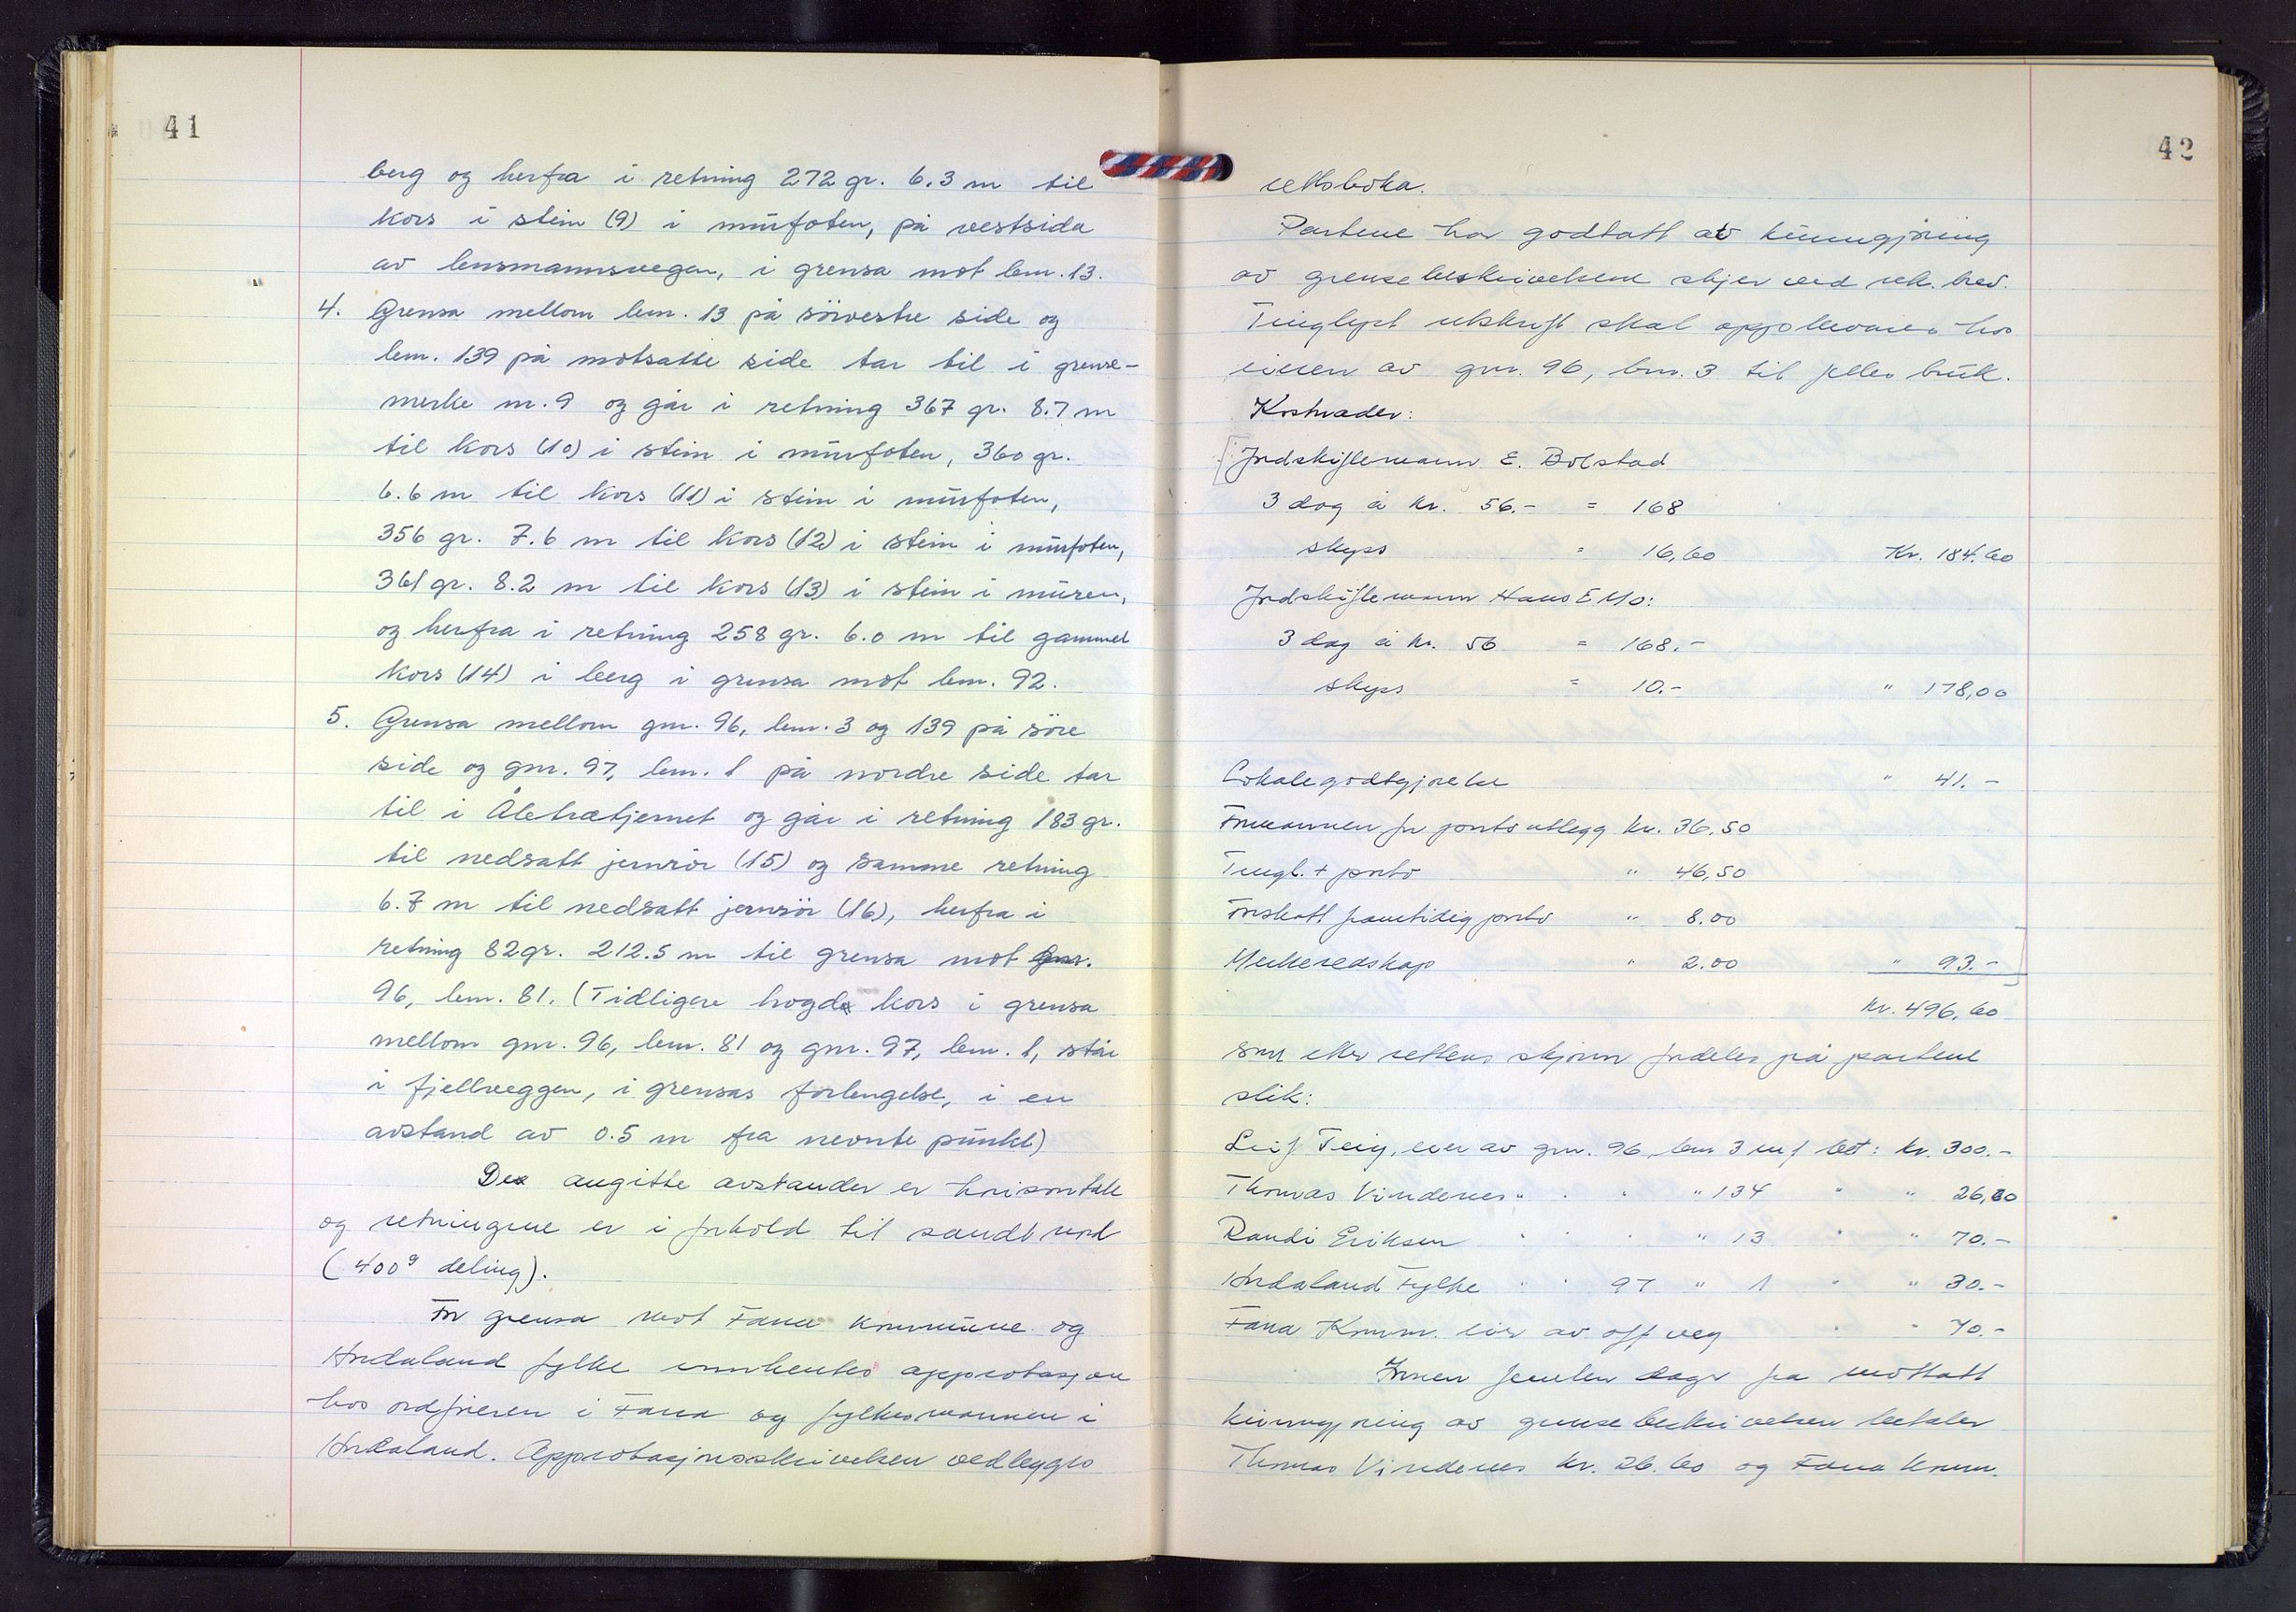 41
berg og herfra i retning 272 gr. 6.3 m til
kors i stein (9) i murfoten, på vestsida
av lensmannsvegen, i grensa mot bnr. 13.
4. Grensa mellom bnr. 13 på sørvestre side og
bnr. 139 på motsatte side tar til i grense-
merke nr. 9 og går i retning 367 gr. 8.7 m
til kors (10) i stein i murfoten, 360 gr.
6.6 m til kors (11) i stein i murfoten,
356 gr. 7.6 m til kors (12) i stein i murfoten,
361 gr. 8.2 m til kors (13) i stein i muren,
og herfra i retning 258 gr. 6.0 m til gammel
kors (14) i berg i grensa mot bnr. 92.
5. Grensa mellom gnr. 96, bnr. 3 og 139 på søre
side og gnr. 97, bnr. 1 på nordre side tar
til i Åletrætjernet og går i retning 183 gr.
til nedsatt jernrör (15) og samme retning
6.7 m til nedsatt jernrör (16), herfra i
retning 82 gr. 212.5 m til grensa mot gnr.
96, bnr. 81. (Tidligere hogde kors i grensa
mellom gnr. 96, bnr. 81 og gnr. 97, bnr. 1, står
i fjellveggen, i grensas forlengelse, i en
avstand av 0.5 m fra nevnte punkt)
De angitte avstander er horisontale
og retningene er i forhold til sandt nord
(400g deling).
For grensa mot Fana kommune og
Hordaland fylke innhentes approbasjon
hos ordføreren i Fana og fylkesmannen i
Hordaland. Approbasjonsskrivelsen vedlegges
42
rettsboka.
Partene har godtatt at kunngjøring
av grensebeskrivelsene skjer ved rek. brev.
Tinglyst utskrift skal oppbevares hos
eieren av gnr. 96, bnr. 3 til felles bruk.
Kostnader:
Jordskiftemann E. Bolstad
3 dag à kr. 56.- = 168
skyss = 16,60 Kr. 184.60
Jordskiftemann Hans E Mo:
3 dag à kr. 56 = 168.-
skyss = 10.- " 178,00
Lokalegodtgjørelse " 41.-
Formannen for portoutlegg kr. 36,50
Tingl. + porto " 46,50
Forskott framtidig porto " 8.00
Merkeredskap " 2.00 " 93.-
kr. 496,60
som etter rettens skjønn fordeles på partene
slik:
Leif Teig, eier av gnr. 96 bnr 3 m/ bet: kr. 300.-
Thomas Vindenes " " " " 134 " " 26,60
Randi Eriksen " " " " 13 " " 70.-
Hordaland Fylke " " 97 " 1 " " 30.-
Fana Komm. eier av off veg " " 70.-
Innen femten dager fra mottatt
kunngjøring av grensebeskrivelsen betaler
Thomas Vindenes kr. 26.60 og Fana komm.